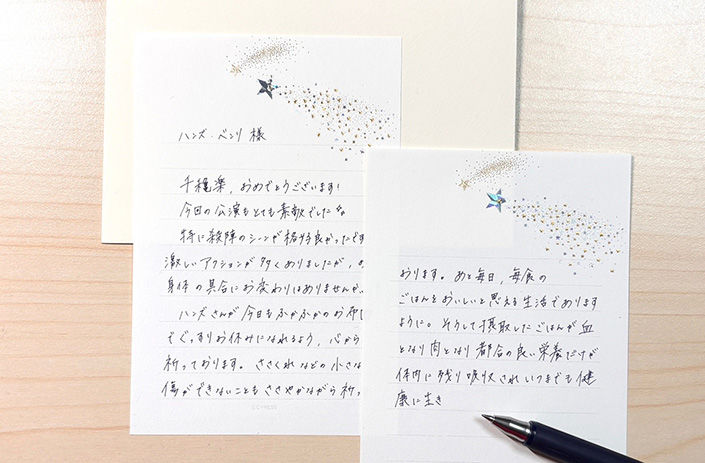 ハンズ・ベンリ 様
千穐楽、おめでとうございます！
今回の公演もとても素敵でした
特に殺陣のシーンが格好良かったです
激しいアクションが多くありましたが、お
身体の具合にお変わりはありませんか
ハンズさんが今日もふかふかのお布団
でぐっすりお休みになれるよう、心から
祈っております。ささくれなどの小さな
傷ができないこともささやかながら祈っ
CYPRESS
おります。あと毎日、毎食の
ごはんをおいしいと思える生活であります
ように。そうして摂取したごはんが血
となり肉となり都合の良い栄養だけが
体内に残り吸収されいつまでも健
康に生き